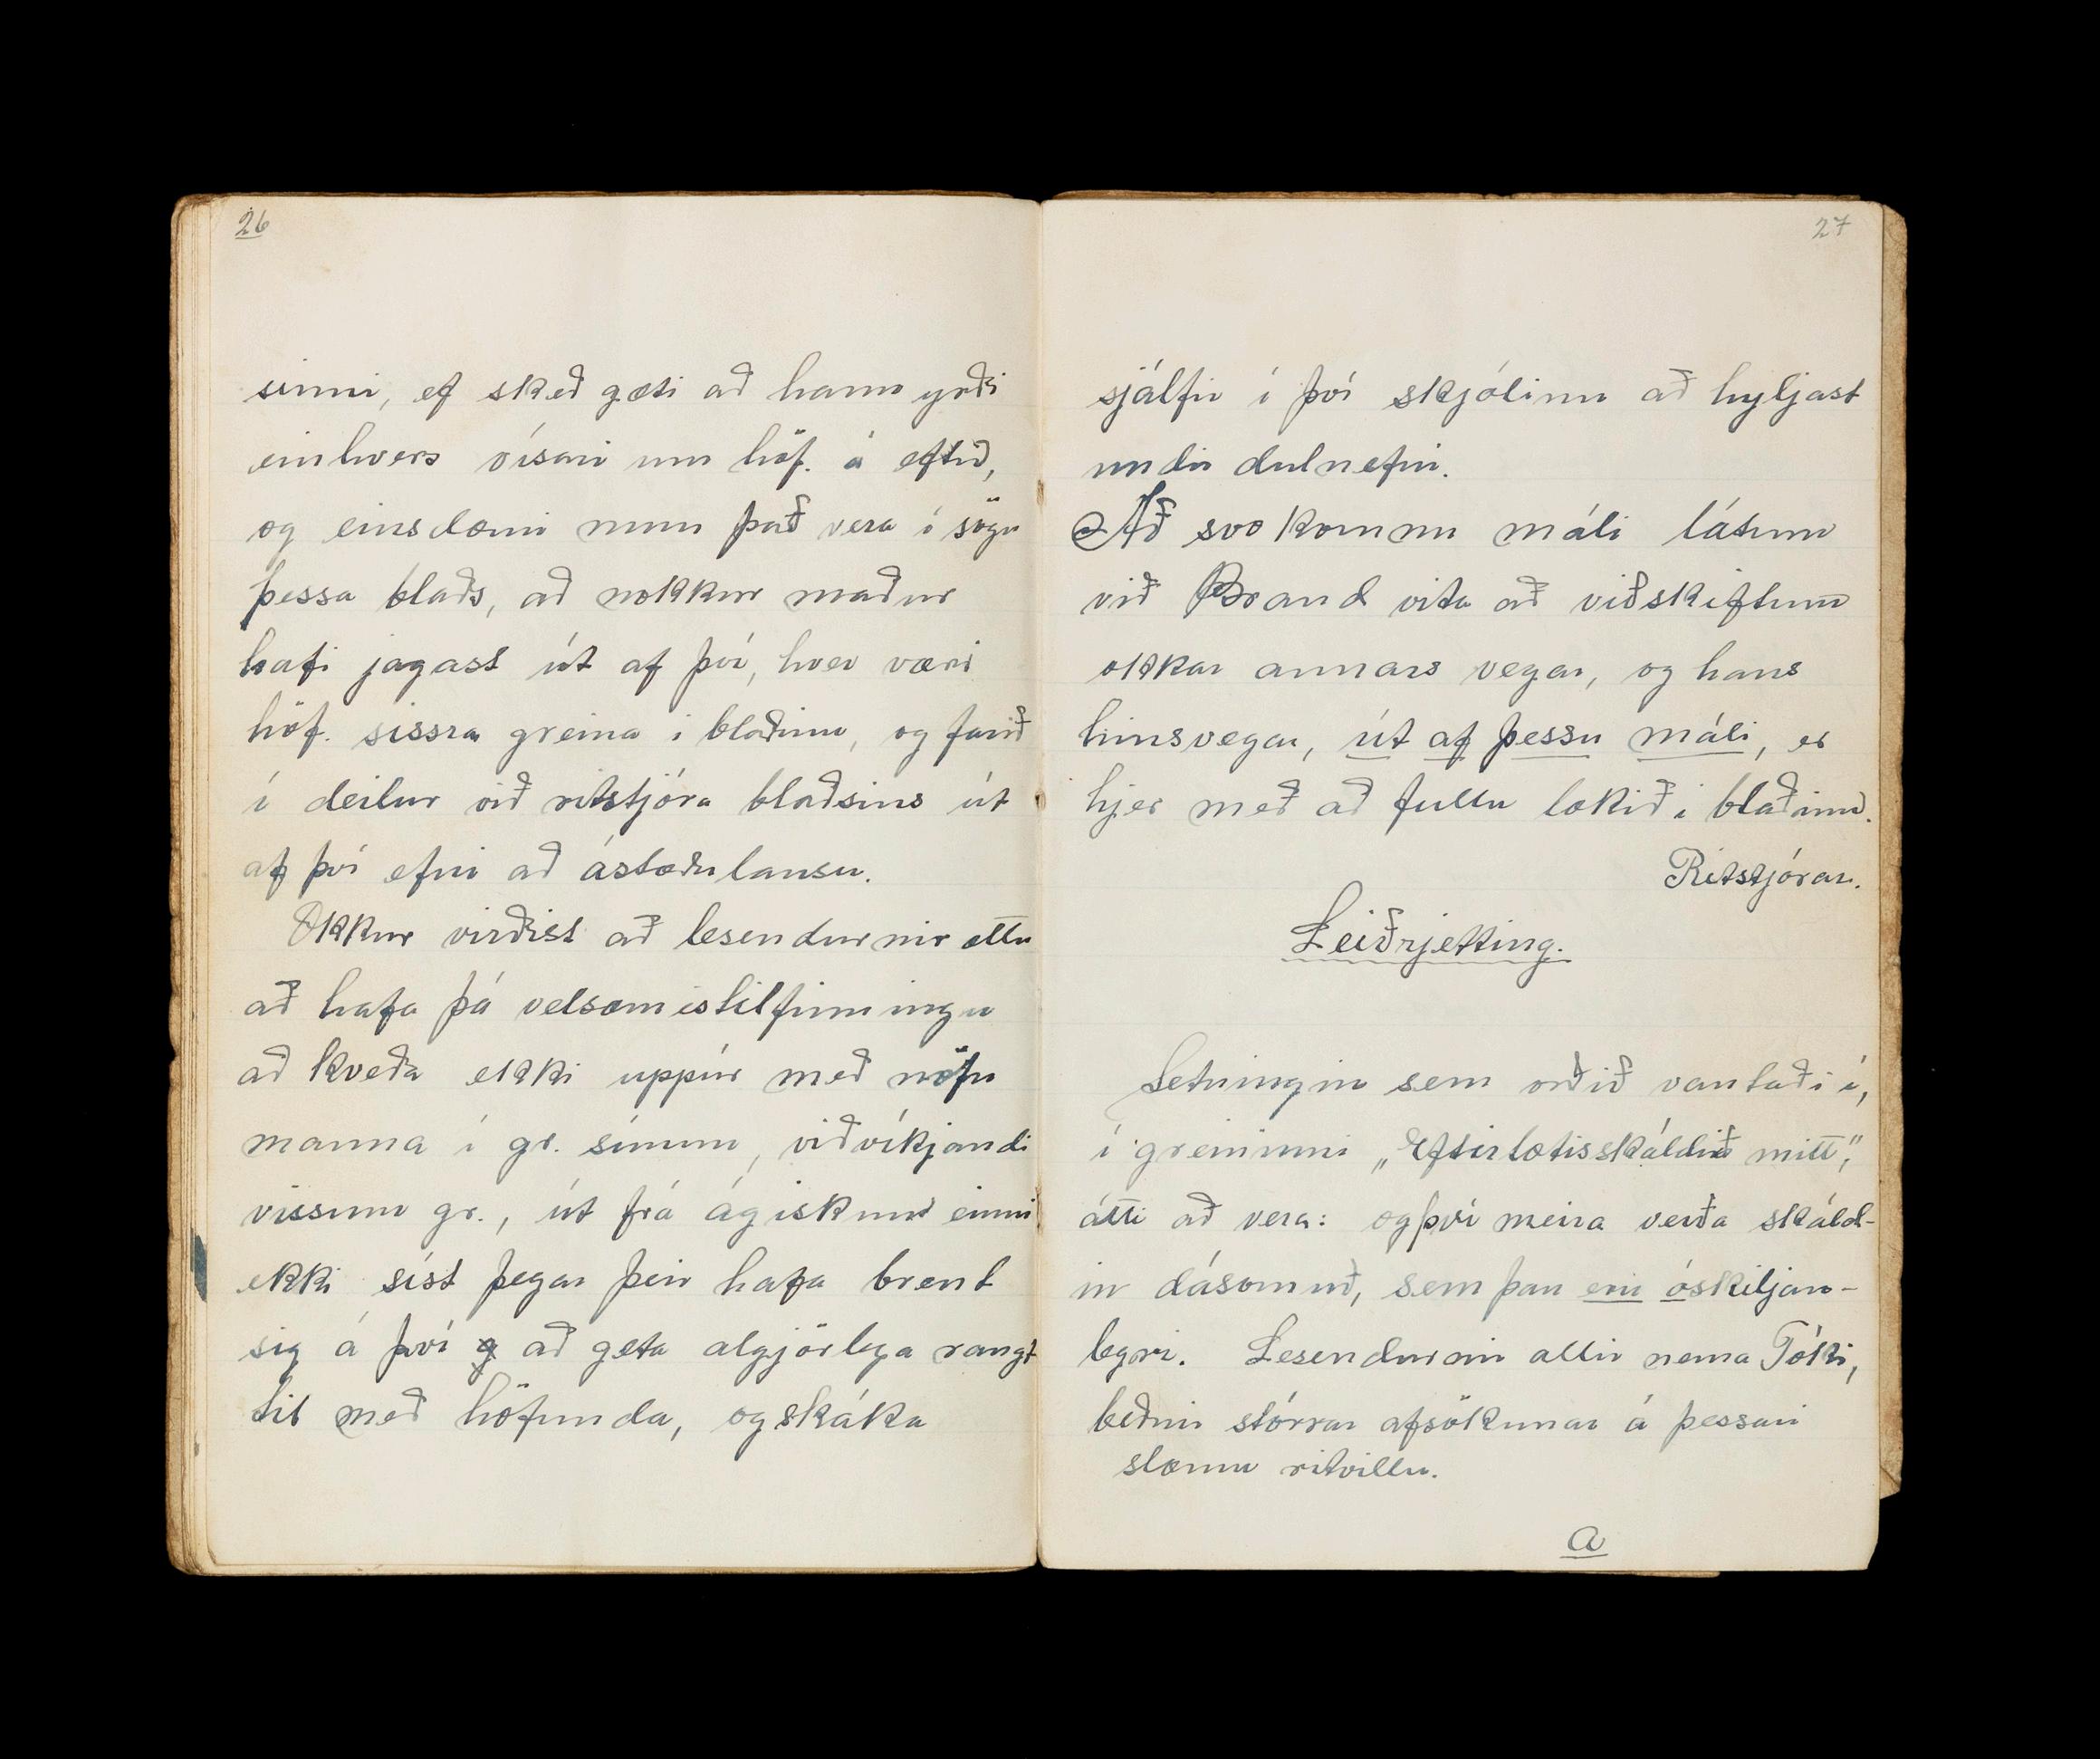 26
sinni, ef skeð gæti að hann yrði
einhvers vísari um höf. á eftir,
og einsdæmi mun það vera í sögu
þessa blaðs, að nokkur maður
hafi jagast út af því, hver væri
höf. vissra greina í blaðinu, og farið
í deilur við ritstjóra blaðsins út
af því efni að ástæðulausu.
Okkur virðist að lesendurnir ættu
að hafa þá velsæmistilfinningu
að kveða ekki uppúr með nöfn
manna í gr. sínum, viðvíkjandi
vissum gr., út frá ágiskun einni
ekki síst þegar þeir hafa brent
sig á því að geta algjörlega rangt
til með höfunda, og skáka
27
sjálfir í því skjólinu að hyljast
undir dulnefni.
Að svo komnu máli látum
við Brand vita að viðskiftum
okkar annars vegar, og hans
hinsvegar, út af þessu máli, er
hjer með að fullu lokið í blaðinu.
Ritstjórar.
Leiðrjetting.
Setningin sem orðið vantaði í,
í greininni „Eftirlætisskáldið mitt",
átti að vera: og því meira verða skáld-
in dásömuð, sem þau eru óskiljan-
legri. Lesendurnir allir nema Tóki,
beðnir stórrar afsökunar á þessari
slæmu ritvillu.
A